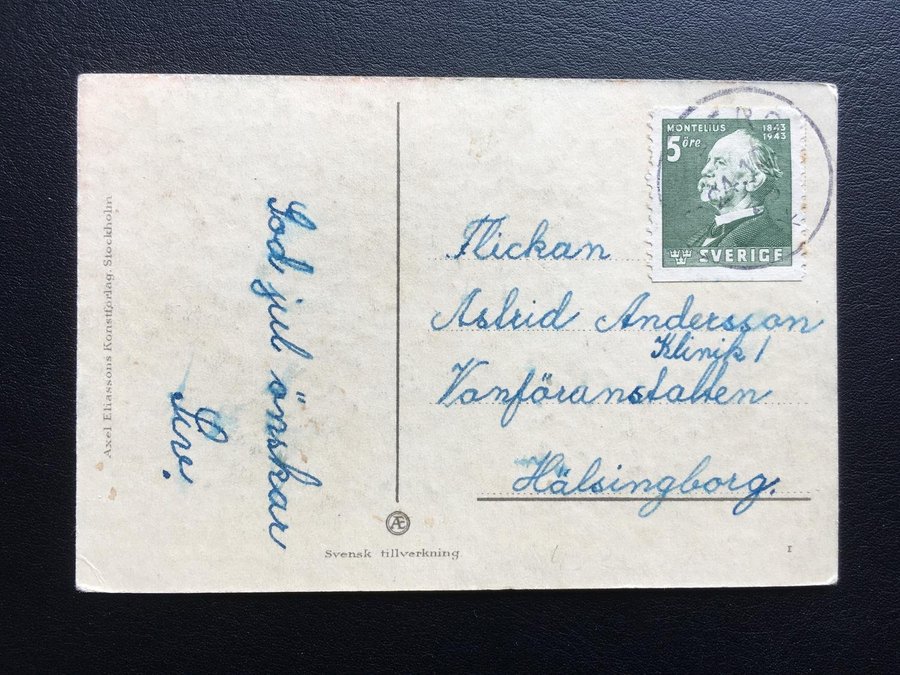 Axel Eliassons Konstförlag. Stockholm
God jul önskar
Siw.
MONTELIUS 1843
1943
5 öre
SVERIGE
Flickan
Astrid Andersson
Klinik 1
Vanföranstalten
Hälsingborg.
Æ
Svensk tillverkning
I